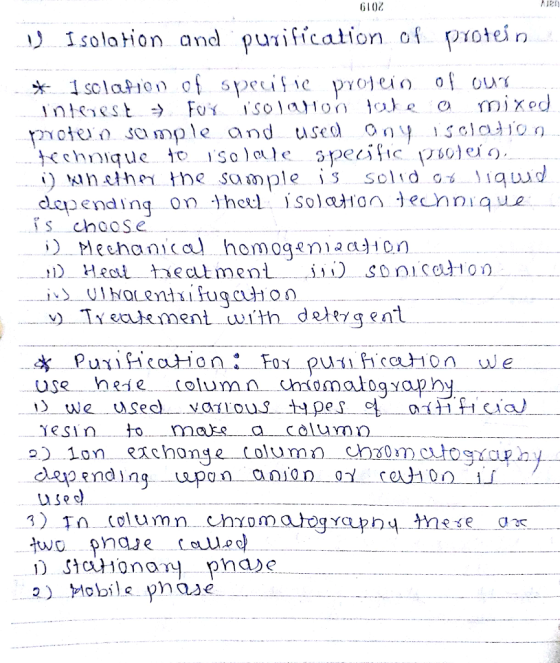 2019
1) Isolation and purification of protein
* Isolation of specific protein of our
interest ⇒ For isolation take a mixed
protein sample and used any isolation
technique to isolate specific protein.
i) Whether the sample is solid or liquid
depending on that isolation technique
is choose
i) Mechanical homogenization
ii) Heat treatment iii) sonication
iv) Ultracentrifugation
v) Treatement with detergent
* Purification: For purification we
use here column chromatography
1) we used various types of artificial
resin to make a column
2) Ion exchange column chromatography
depending upon anion or cation is
used
3) In column chromatography there are
two phase called
1) Stationary phase
2) Mobile phase